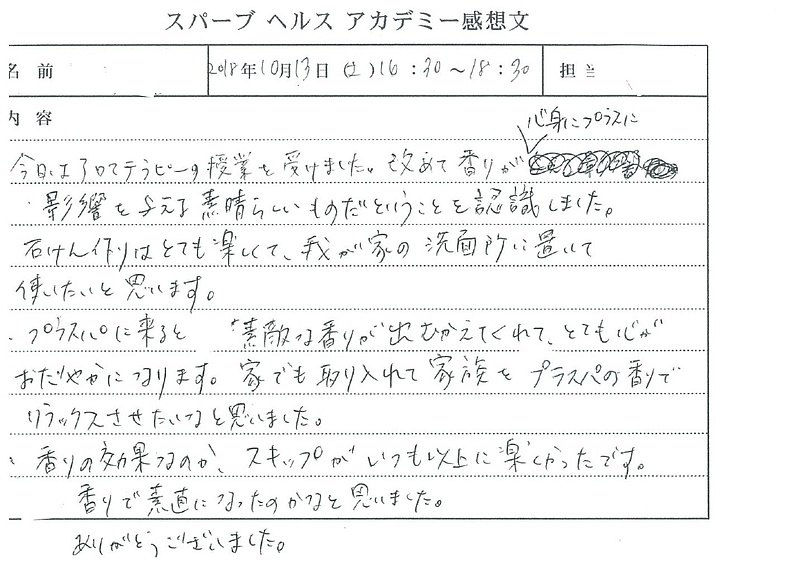 スパーブ ヘルス アカデミー感想文
名 前
2018年10月13日(土)16:30～18:30
担当
内 容
心身にプラスに
今日はアロマテラピーの授業を受けました。改めて香りが
影響を与える素晴らしいものだということを認識しました。
石けん作りはとても楽しくて、我が家の洗面所に置いて
使いたいと思います。
プラスパに来ると 素敵な香りが出むかえてくれて、とても心が
おだやかになります。家でも取り入れて家族をプラスパの香りで
リラックスさせたいなと思いました。
香りの効果なのか、スキップがいつも以上に楽しかったです。
香りで素直になったのかなと思いました。
ありがとうございました。